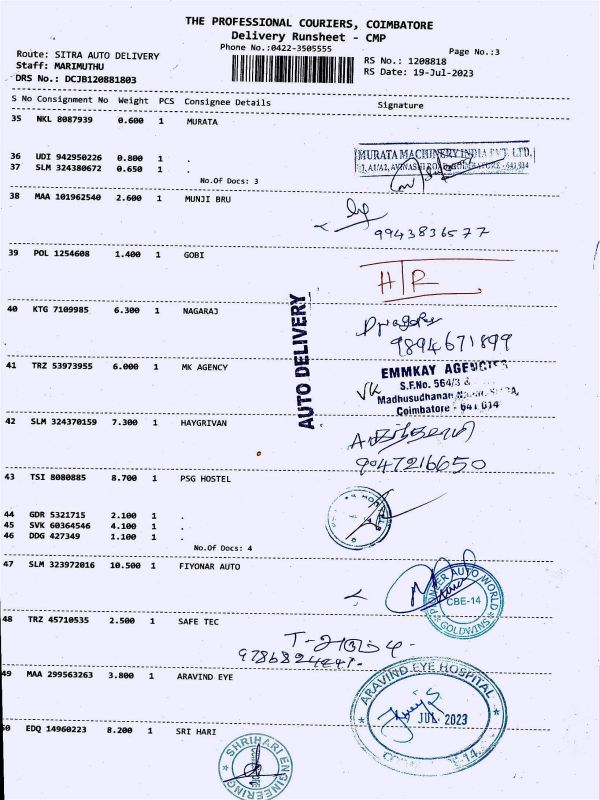 THE PROFESSIONAL COURIERS, COIMBATORE
Delivery Runsheet - CMP
Phone No.:0422-3505555
Page No.:3
Route: SITRA AUTO DELIVERY
Staff: MARIMUTHU
DRS No.: DCJB120881803
RS No.: 1208818
RS Date: 19-Jul-2023
S No Consignment No Weight PCS Consignee Details Signature
35 NKL 8087939 0.600 1 MURATA
MURATA MACHINERY INDIA PVT. LTD.
36 UDI 942950226 0.800 1 .
37 SLM 324380672 0.650 1 .
No.Of Docs: 3
38 MAA 101962540 2.600 1 MUNJI BRU
9943836577
39 POL 1254608 1.400 1 GOBI
H/R
40 KTG 7109985 6.300 1 NAGARAJ
9894671899
AUTO DELIVERY
41 TRZ 53973955 6.000 1 MK AGENCY
EMMKAY AGENCIES
S.F.No. 564/3 &
Madhusudhanan
Coimbatore - 641 014
42 SLM 324370159 7.300 1 HAYGRIVAN
9047216650
43 TSI 8080885 8.700 1 PSG HOSTEL
44 GDR 5321715 2.100 1 .
45 SVK 60364546 4.100 1 .
46 DDG 427349 1.100 1 .
No.Of Docs: 4
47 SLM 323972016 10.500 1 FIYONAR AUTO
PIONEER AUTO WORLD
CBE-14
GOLDWINS
48 TRZ 45710535 2.500 1 SAFE TEC
49 MAA 299563263 3.800 1 ARAVIND EYE
ARAVIND EYE HOSPITAL
JUL 2023
50 EDQ 14960223 8.200 1 SRI HARI
SHRIHARI ENGINEERING